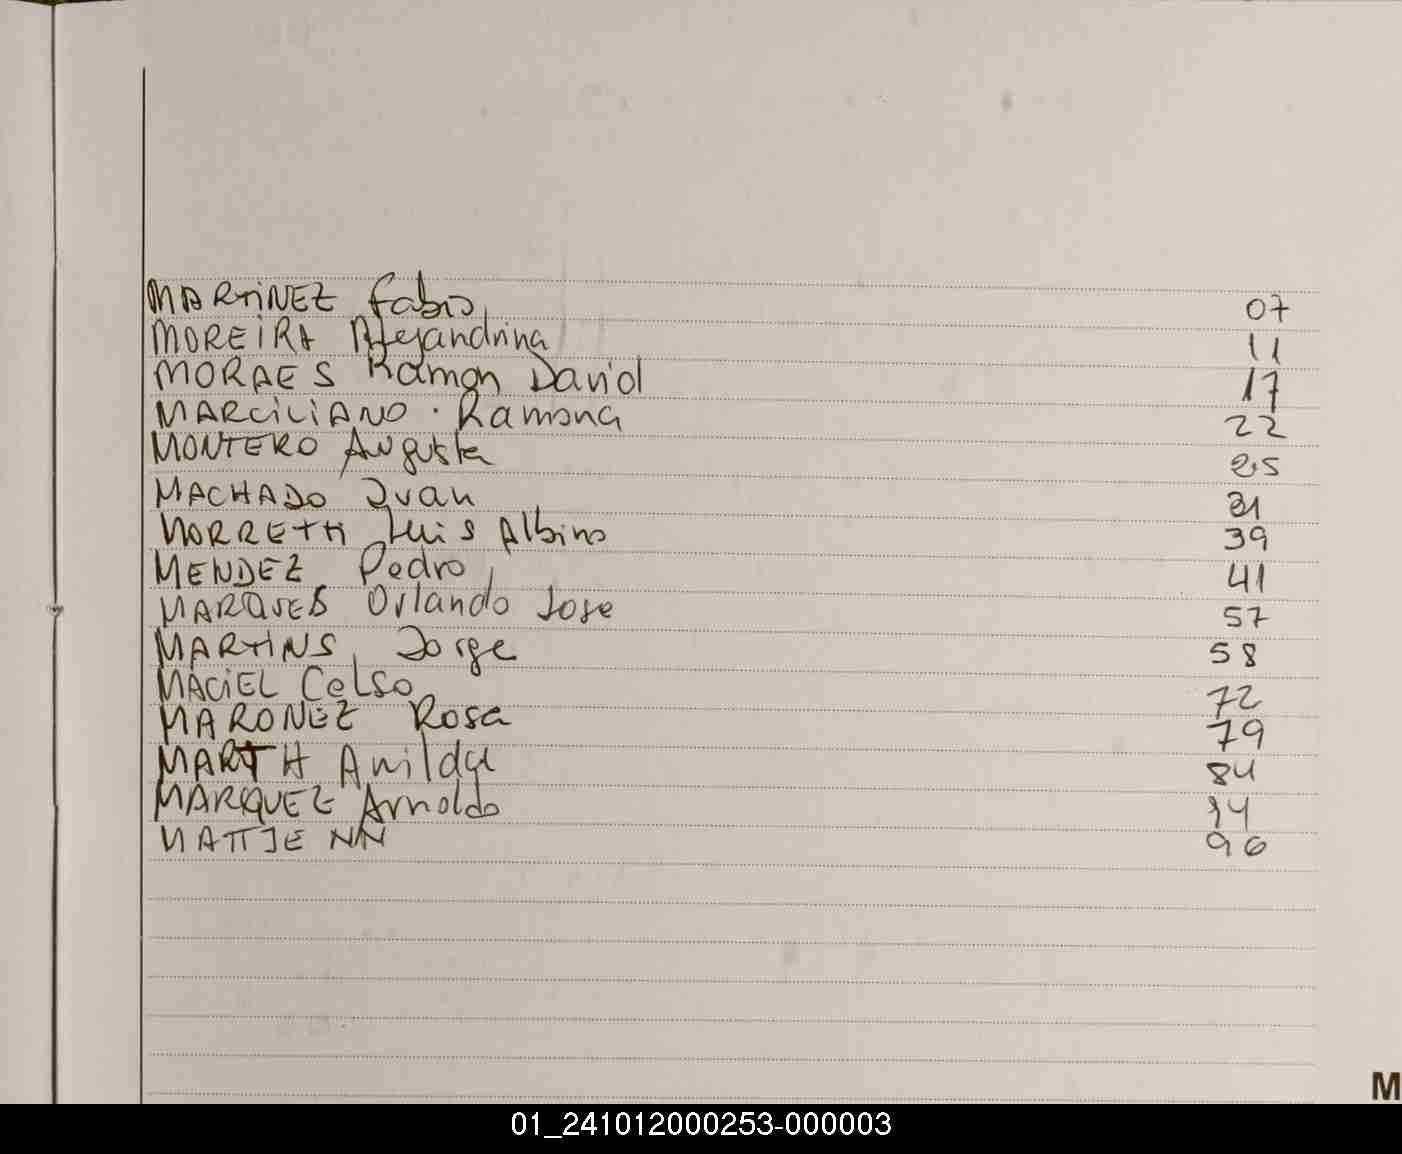 MARTINEZ Fabio 07
MOREIRA Alejandrina 11
MORAES Ramon David 17
MARCILIANO. Ramona 22
MONTERO Augusta 25
MACHADO Ivan 31
MORRETTI Luis Albino 39
MENDEZ Pedro 41
MARQUES Orlando Jose 57
MARTINS Jorge 58
MACIEL Celso 72
MARONEZ Rosa 79
MARTH Anilda 84
MARQUEZ Arnoldo 94
MATTJE NN 96
M
01_241012000253-000003